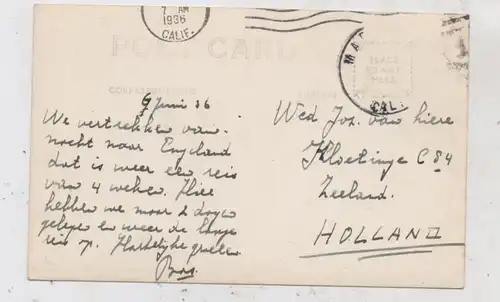 7 AM
1936
CALIF.
POST CARD
PLACE
STAMP
HERE
MA
CAL.
CORRESPONDENCE
9 Juni 36
We vertrekken van-
nacht naar Engeland
dat is weer een reis
van 4 weken. Hier
hebben we maar 2 dagen
gelegen en weer de lange
reis op. Hartelijke groeten
Bas.
Wed Jos. van hiere
Kloetinge C 84
Zeeland.
HOLLAND